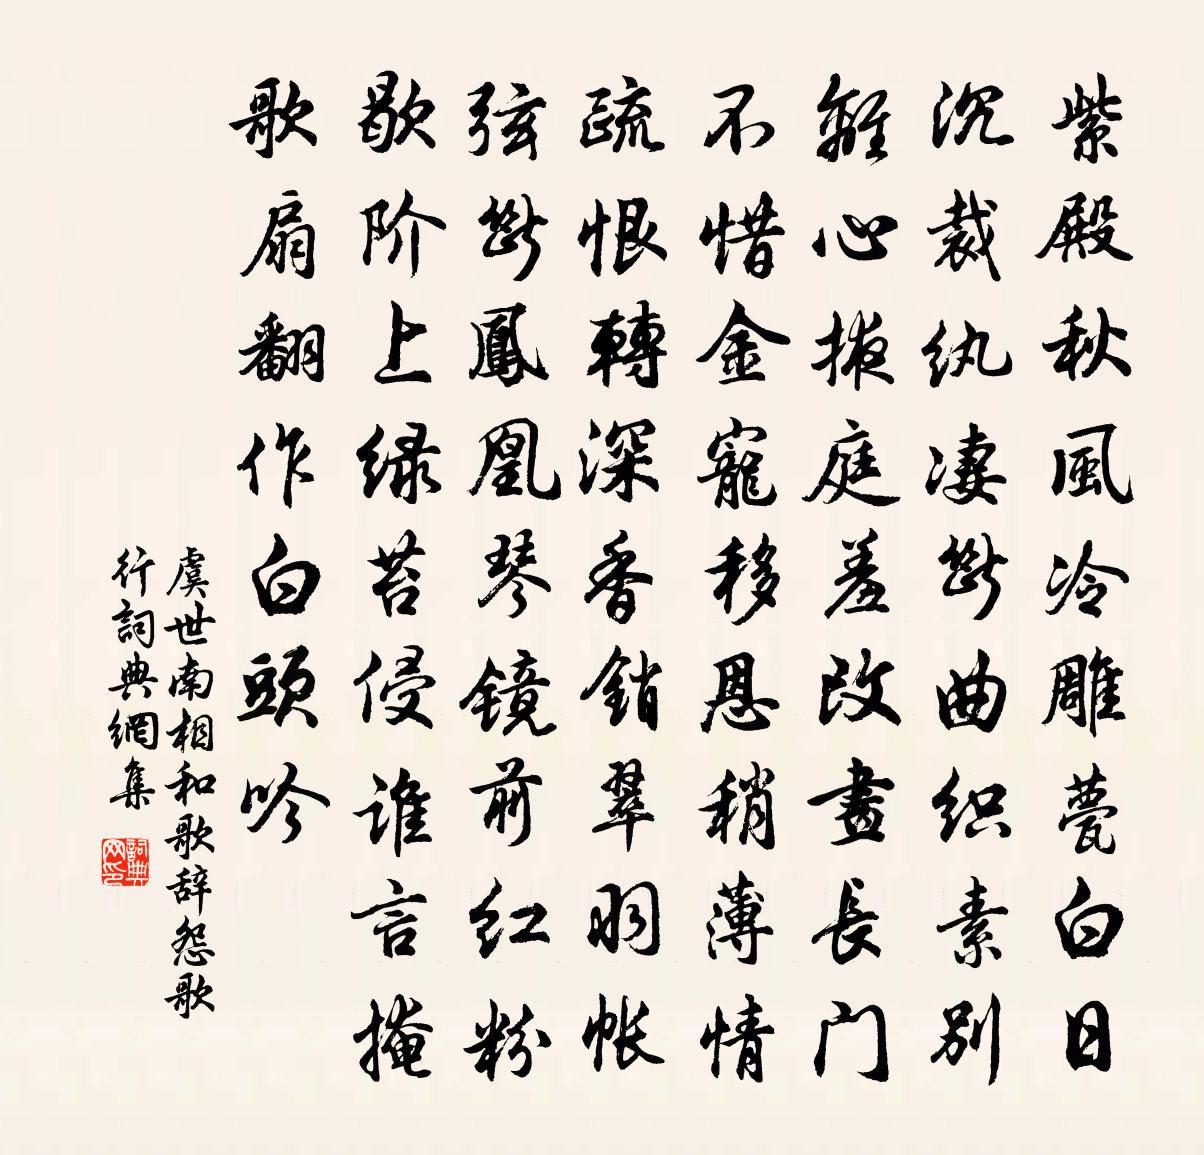 紫殿秋風冷雕甍白日
沉裁纨淒斷曲织素别
離心掖庭羞改畫長门
不惜金寵移恩稍薄情
疏恨轉深香銷翠羽帐
弦斷鳳凰琴镜前红粉
歇阶上绿苔侵谁言掩
歌扇翻作白頭吟
虞世南相和歌辞怨歌
行詞典網集
詞典
网印